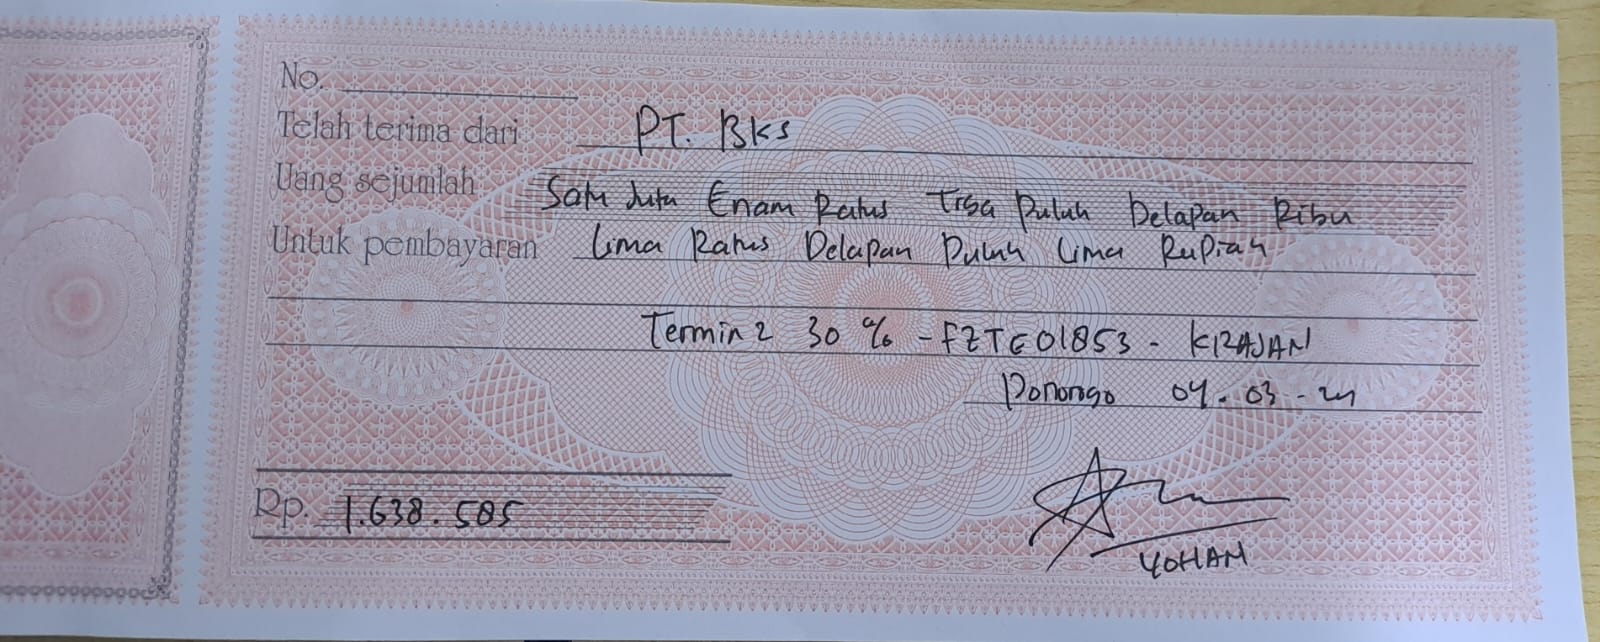 No.
Telah terima dari PT. BKS
Uang sejumlah Satu Juta Enam Ratus Tiga Puluh Delapan Ribu
Untuk pembayaran Lima Ratus Delapan Puluh Lima Rupiah
Termin 2 30 % - FZTE01853 - KRAJAN
Ponorogo 04-03-24
Rp. 1.638.585
YOHAN